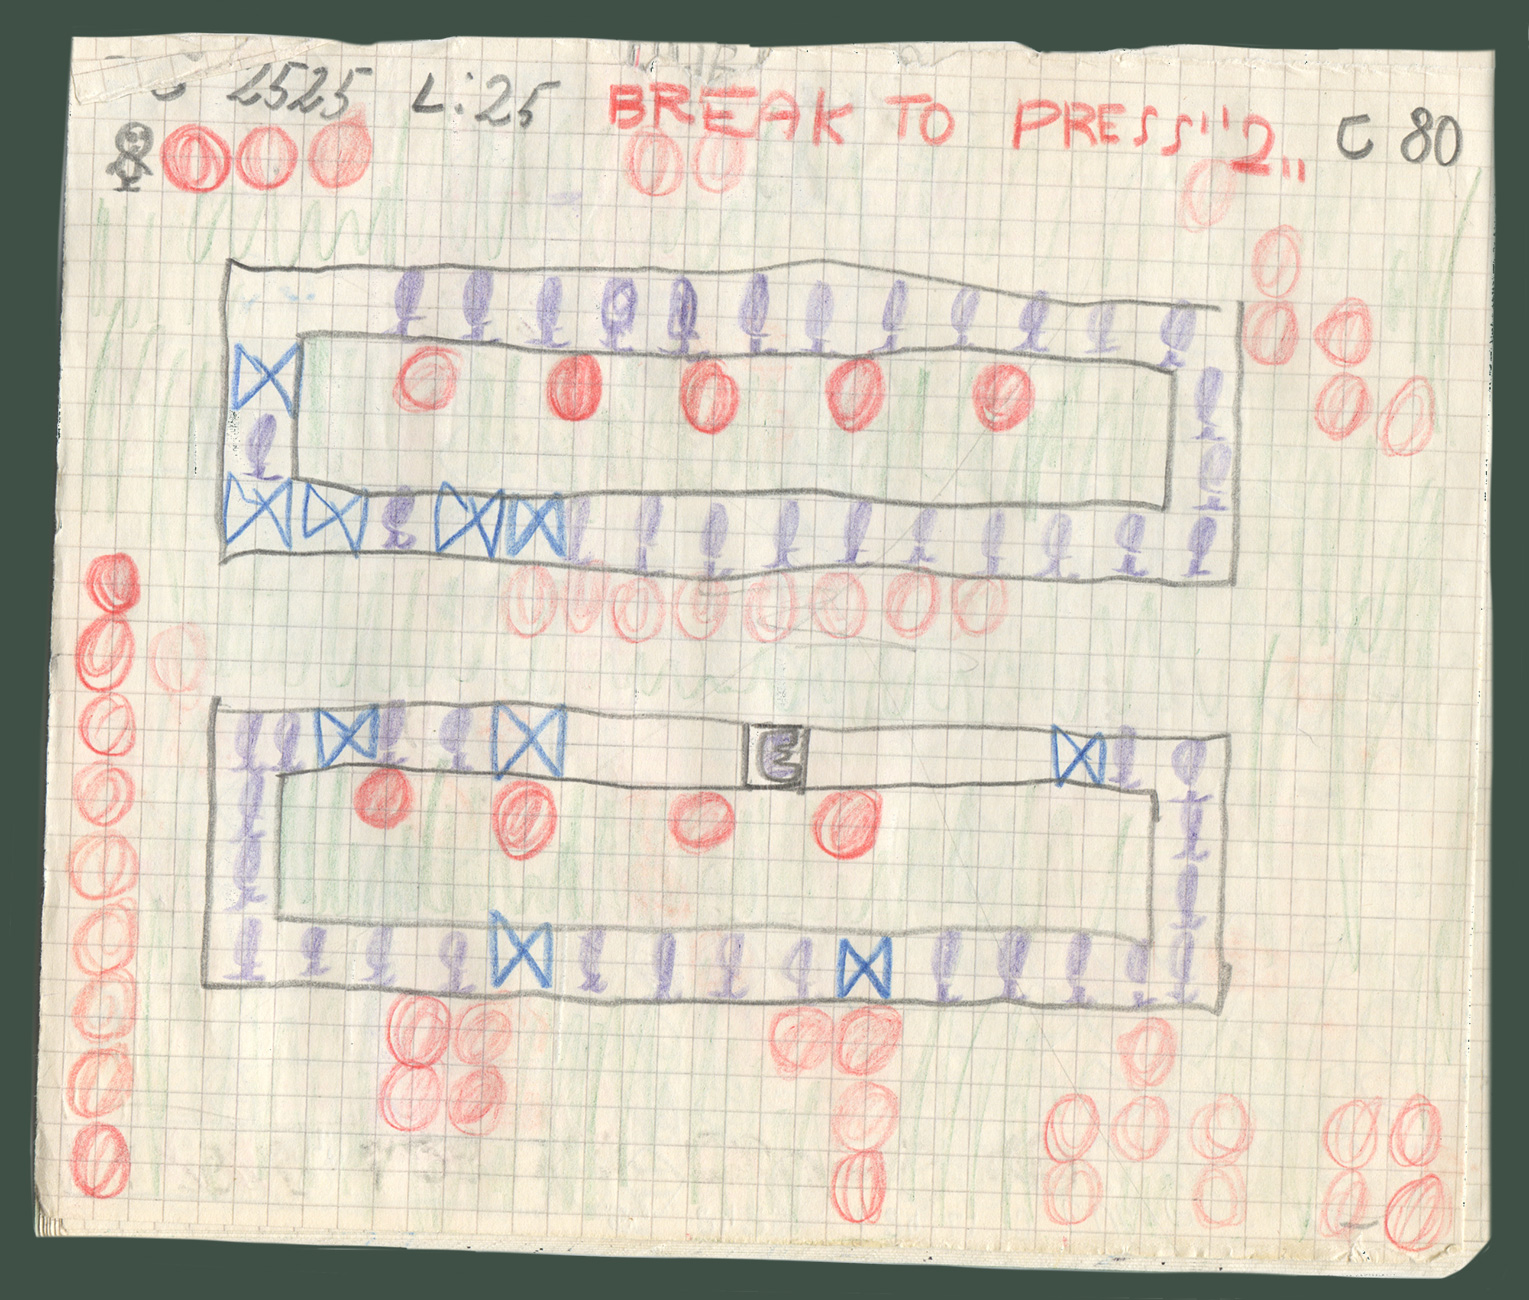 2525 L:25 BREAK TO PRESS "2,, C 80
E